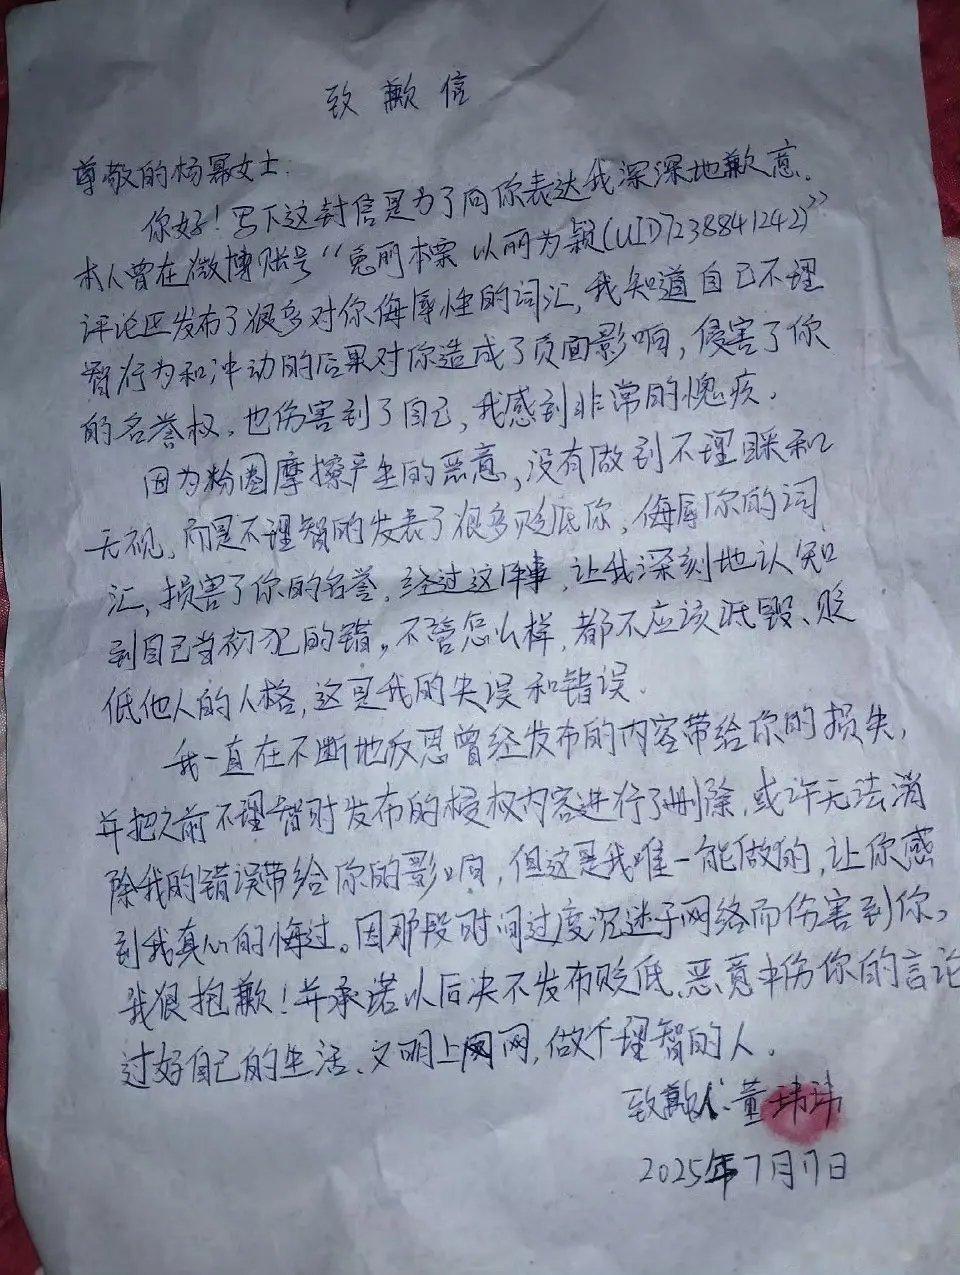 致歉信
尊敬的杨幂女士:
你好！写下这封信是为了向你表达我深深地歉意.
本人曾在微博账号“兔丽本票 以丽为颖(UID7238841242)”
评论区发布了很多对你侮辱性的词汇,我知道自己不理
智行为和冲动的后果对你造成了负面影响,侵害了你
的名誉权,也伤害到了自己,我感到非常的愧疚.
因为粉圈摩擦产生的恶意,没有做到不理睬和
无视,而是不理智的发表了很多贬低你,侮辱你的词
汇,损害了你的名誉,经过这件事,让我深刻地认知
到自己当初犯的错,不管怎么样,都不应该诋毁、贬
低他人的人格,这是我的失误和错误.
我一直在不断地反思曾经发布的内容带给你的损失,
并把之前不理智时发布的侵权内容进行了删除,或许无法消
除我的错误带给你的影响,但这是我唯一能做的,让你感
到我真心的悔过。因那段时间过度沉迷于网络而伤害到你,
我很抱歉！并承诺以后决不发布贬低、恶意中伤你的言论
过好自己的生活、文明上网,做个理智的人.
致歉人:董玮玮
2025年7月17日